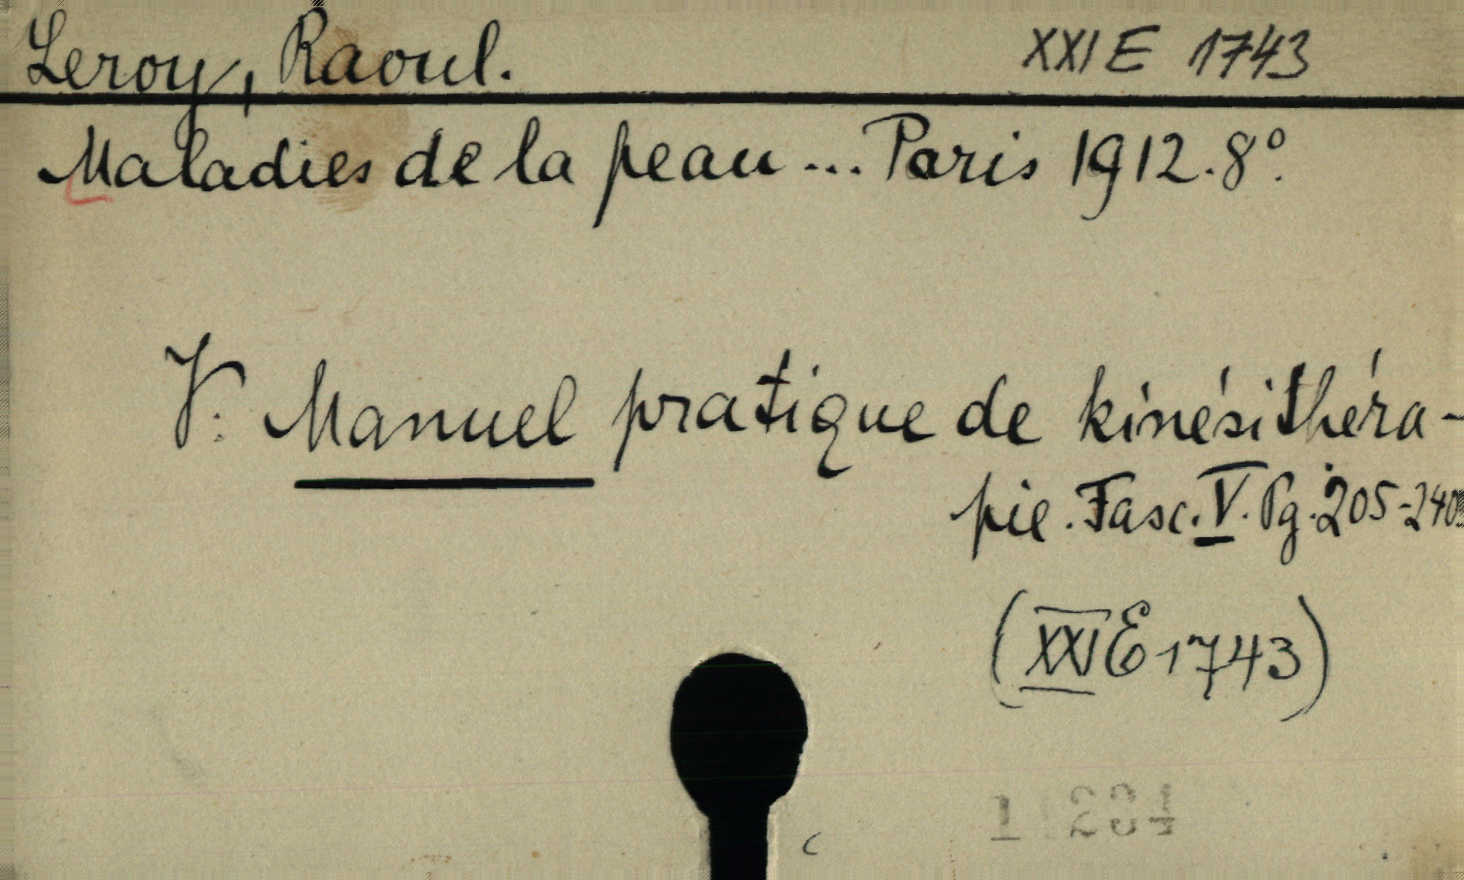 Leroy, Raoul. XXI E 1743
Maladies de la peau... Paris 1912. 8º.
V: Manuel pratique de kinésithéra-
pie. Fasc. V. Pg. 205-240
(XXI E 1743)